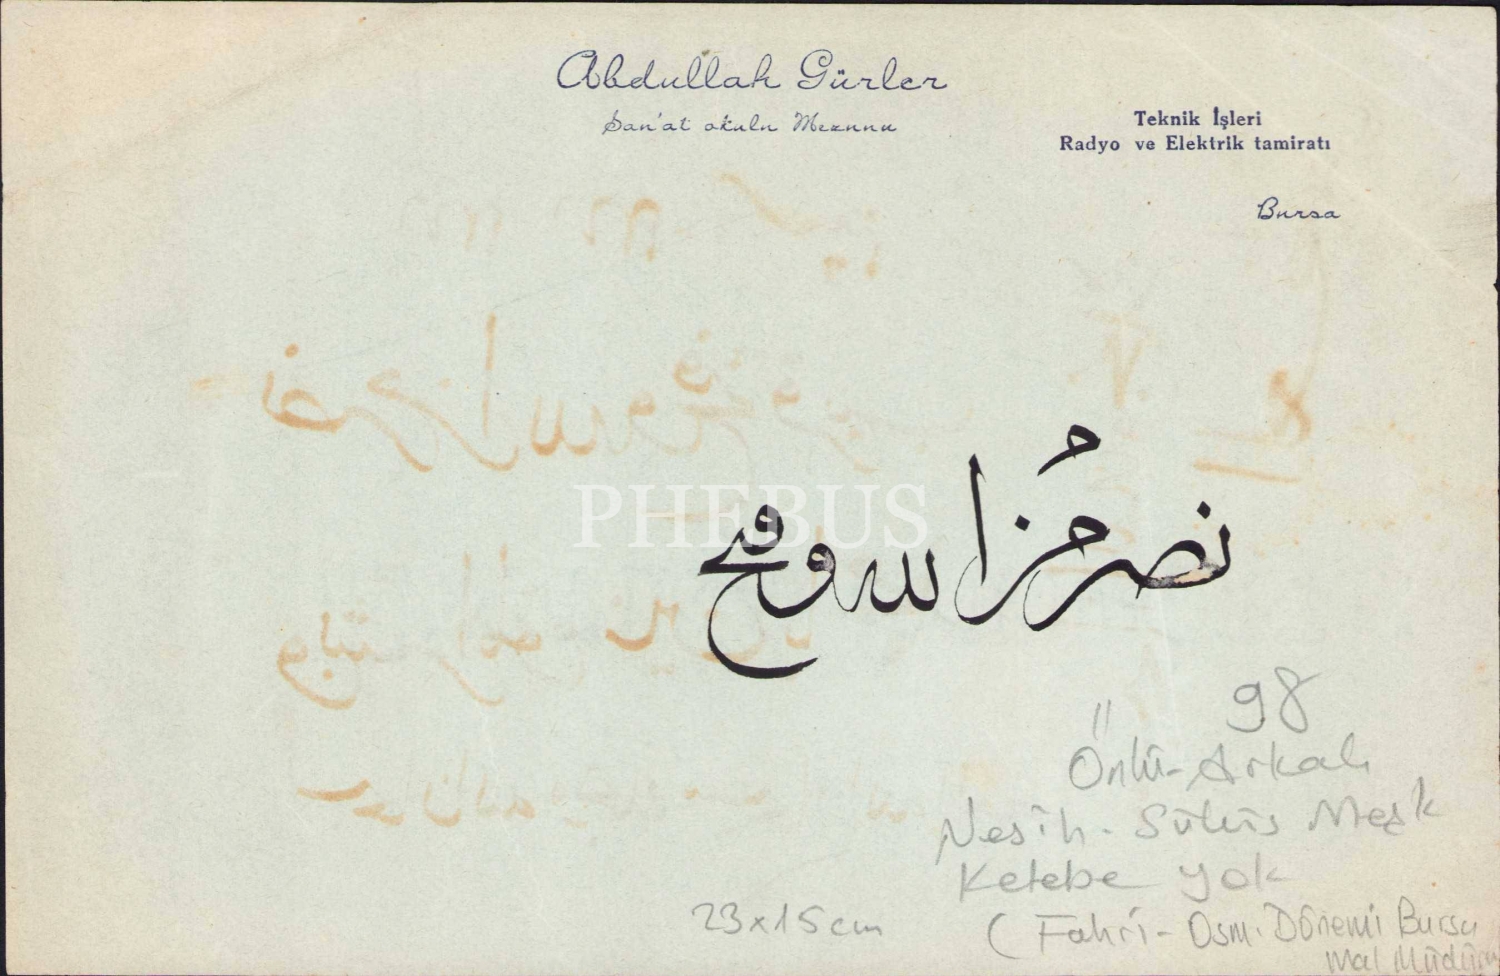 Abdullah Gürler
San'at okulu Mezunu
Teknik İşleri
Radyo ve Elektrik tamiratı
Bursa
PHEBUS
نصر من الله وفتح
98
Önlü-Arkalı
Nesih-Sülüs Meşk
Ketebe yok
23x15cm
(Fahri-Osm. Dönemi Bursa
Mal Müdürü